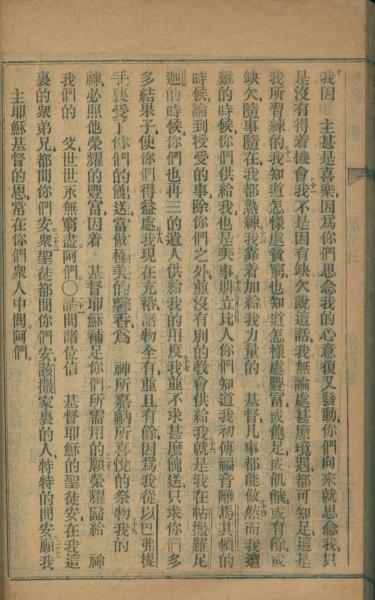 十
我因　主甚是喜樂、因爲你們思念我的心意復又發動、你們向來就思念我、只
是沒有得着機會、十一我不是因有缺欠說這話、我無論處甚麼境遇都可知足、這是
我所習練的、十二我知道怎樣處貧窮、也知道怎樣處豐富、或飽足或飢餓、或有餘或
缺欠、隨事隨在、我都熟練、十三我靠着加給我力量的　基督、凡事都能做、十四然而我遭
難的時候、你們供給我、也是美事、十五腓立比人、你們知道我初傳福音離馬其頓的
時候、論到授受的事、除你們之外、並沒有別的教會供給我、十六就是我在帖撒羅尼
迦的時候、你們也再三的遣人供給我的用度、十七我並不求甚麼餽送、只求你們多
多結果子、使你們得益處、十八我現在充裕、諸物全有、並且有餘、因爲我從以巴弗提
手裏受了你們的餽送、當做極美的馨香、爲　神所嘉納所喜悅的祭物、十九我的
神必照他榮耀的豐富、因着　基督耶穌、補足你們所需用的、二十願榮耀歸給　神
我們的　父、世世永無窮盡、阿們、〇二十一請問諸位信　基督耶穌的聖徒安、在我這
裏的衆弟兄都問你們安、二十二衆聖徒都問你們安、該撒家裏的人特特的問安、二十三願我
主耶穌基督的恩常在你們衆人中間、阿們。